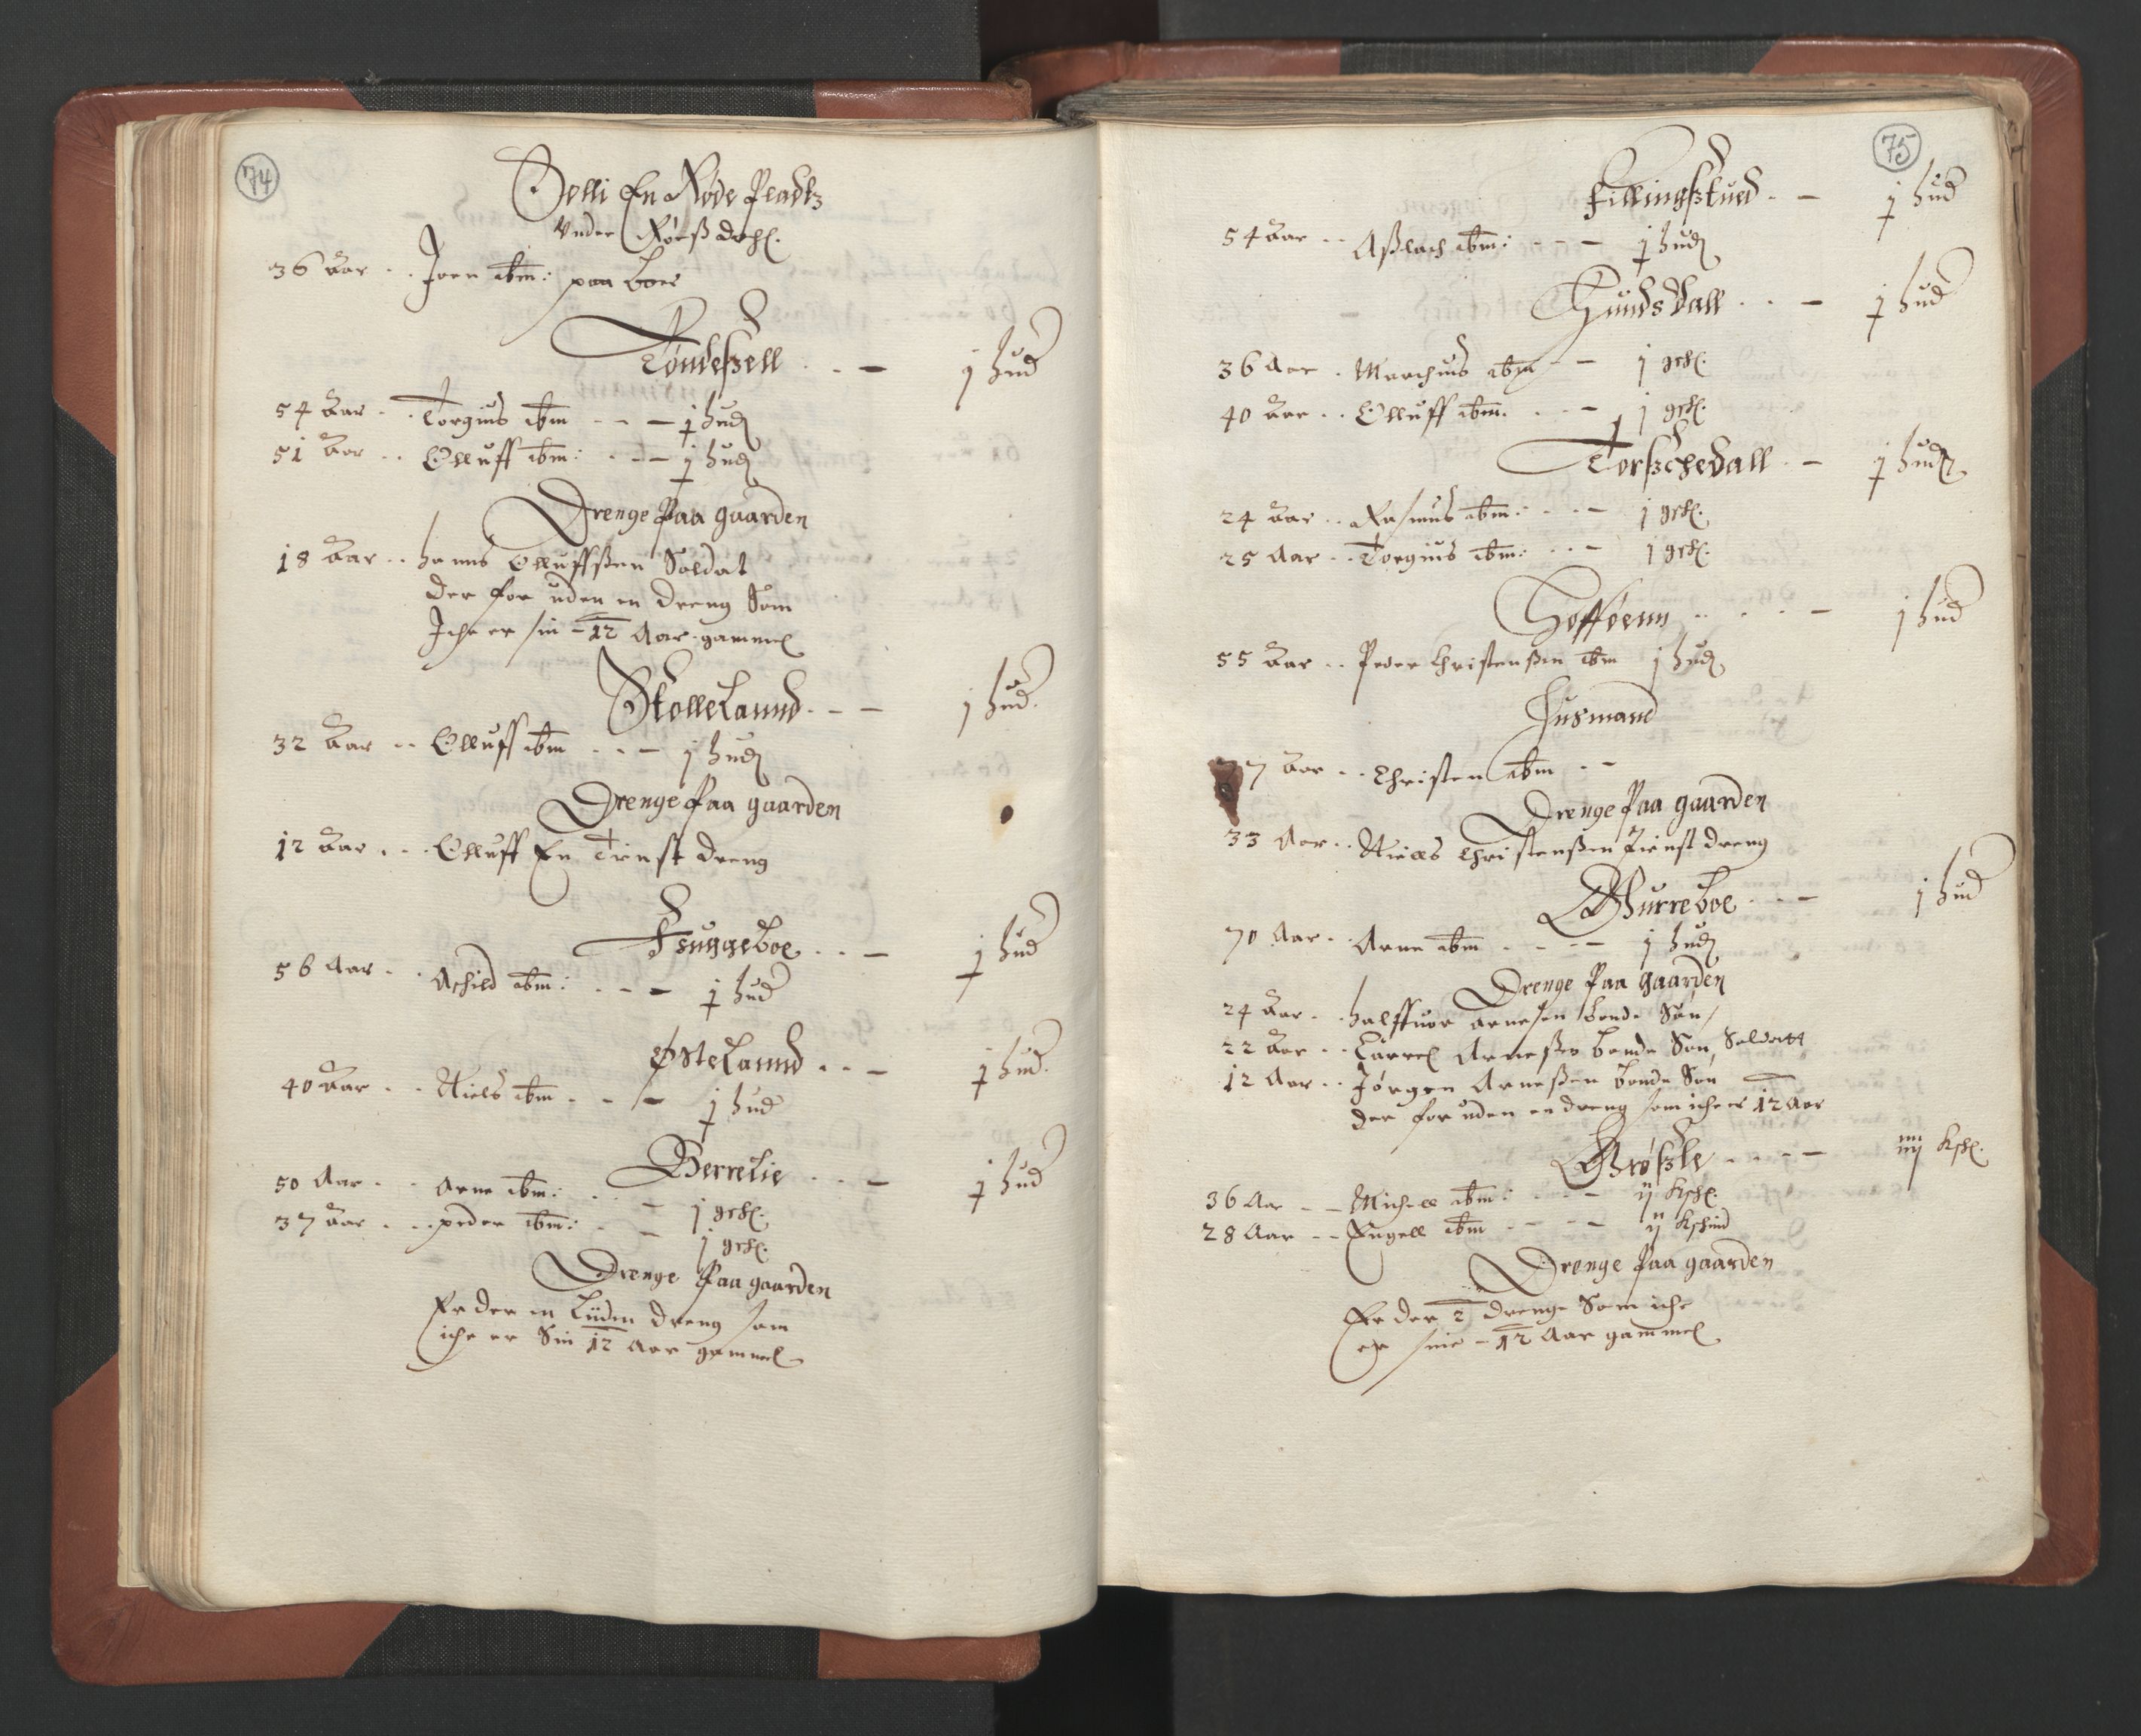 74
Solli En Røde Pladtz
Vnder Røeßdahl.
36 Aar - - Joen ibm: paa boer
Tøndeßell - - - j hud
54 Aar - - Torgius ibm - - - j hud
51 Aar - - Olluff ibm: - - - j hud
Drenge Paa gaarden
18 Aar - - hanns Olluffßen Soldat
der for uden en dreng Som
Iche er sin - 12 Aar gammel
StolleLannd - - - j hud
32 Aar - - Olluff ibm - - - j hud
Drenge Paa gaarden
12 Aar - - Olluff En Tienst dreng
Tsuggeboe - - - j hud
56 Aar - - Achild ibm: - - - j hud
ØsteLannd - - - j hud
40 Aar - - Niels ibm - - - j hud
BerreLie - - - j hud
50 Aar - - Arne ibm: - - - j grh.
37 Aar - - peder ibm: - - j grh.
Drenge Paa gaarden
Er der en Liiden dreng som
iche er Sin 12 Aar gammel
75
Fillingßtued - - j hud
54 Aar - - Aßlach ibm: - - - j hud
Hunds Dall - - - j hud
36 Aar - Marchus ibm - - j grh.
40 Aar - - Olluff ibm: - - - j grh.
Torßchedall - - j hud
24 Aar - - Rasmus ibm: - - - j grh.
25 Aar - - Torgius ibm: - - - j grh.
Hofføenn - - - - j hud
55 Aar - - Peder Christenßen ibm j hud
Husmand
7 Aar - - Christen ibm - -
Drenge Paa gaarden
33 Aar - - Niels Christenßen Tienst dreng
Burreboe - - - j hud
70 Aar - - Arne ibm - - - - j hud
Drenge Paa gaarden
24 Aar - - halffuor arnesen bonde Søn
22 Aar - - Laurel Arneßen bonde Søn, Soldatt
12 Aar - - Jørgen Arneßen bonde Søn
der for uden en dreng som iche er 12 Aar
Brøßle - - - - iiij Ksk.
36 Aar - - Michell ibm: - - - ij Ksk.
28 Aar - - Engell ibm - - - - ij Kskind
Drenge Paa gaarden
Er der 2 drenge Som iche
er sine - 12 Aar gammel